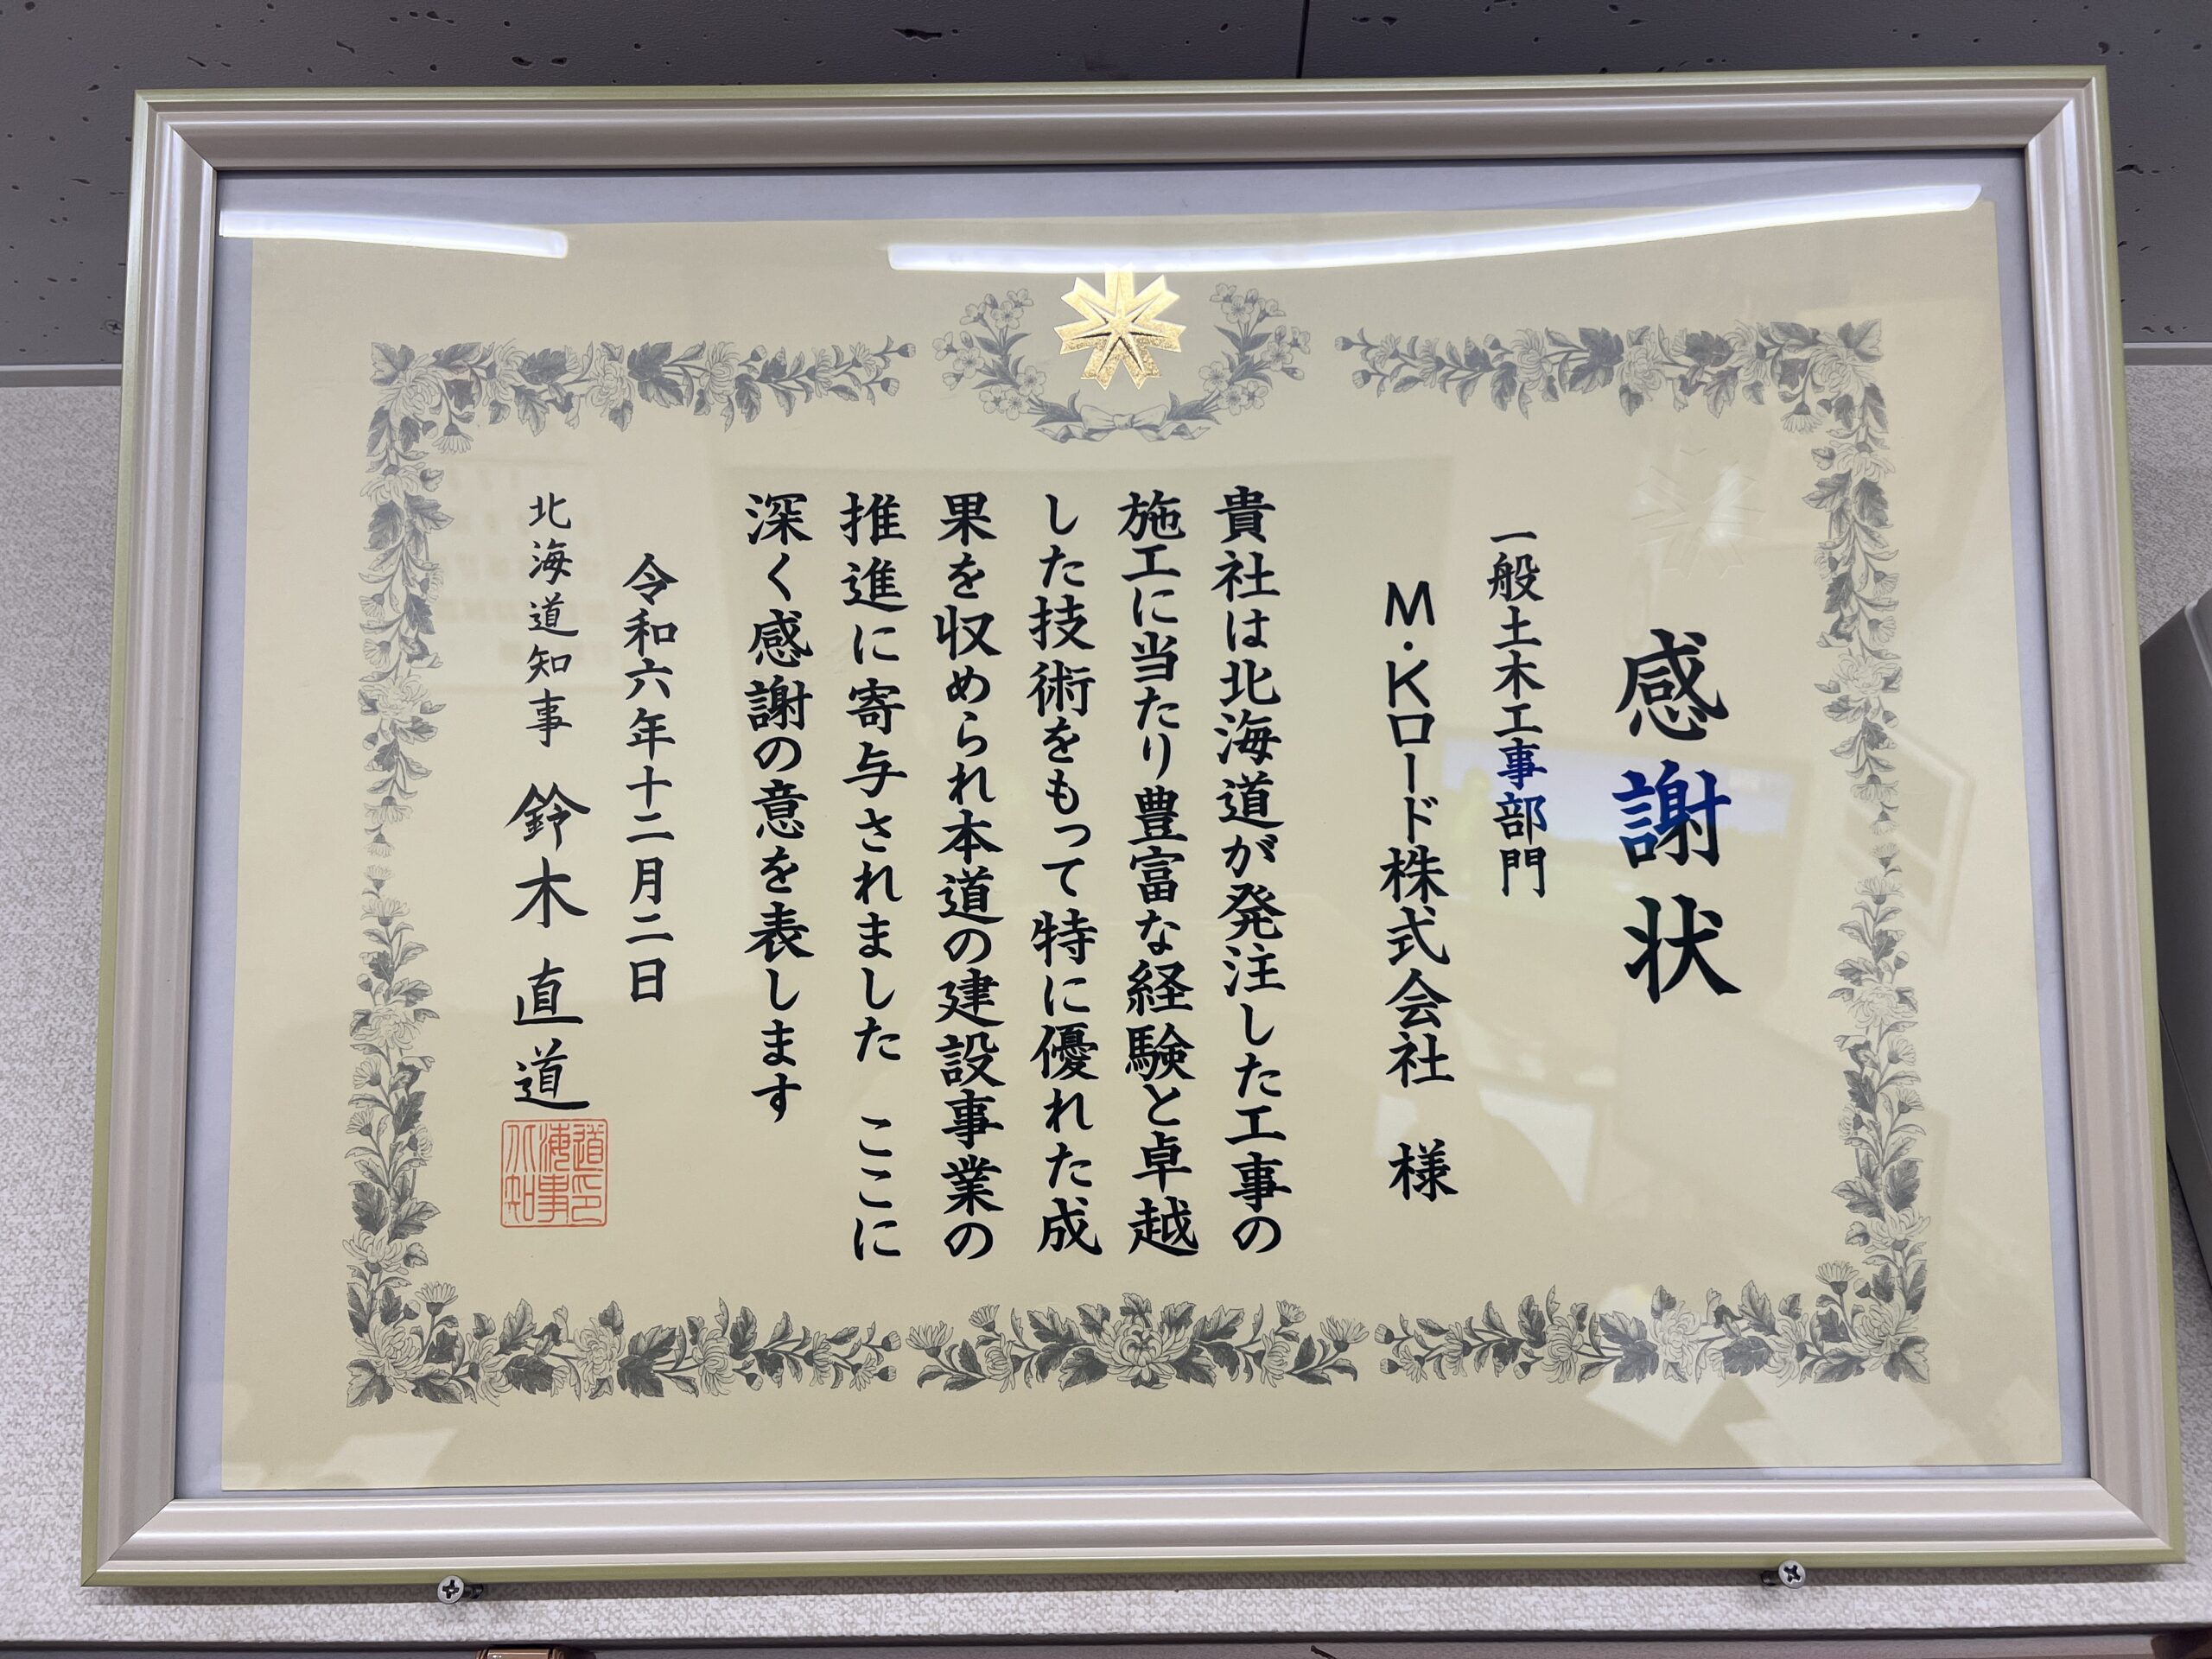 感謝状
一般土木工事部門
M・Kロード株式会社 様
貴社は北海道が発注した工事の
施工に当たり豊富な経験と卓越
した技術をもって特に優れた成
果を収められ本道の建設事業の
推進に寄与されました ここに
深く感謝の意を表します
令和六年十二月二日
北海道知事 鈴木直道
北海道知事印